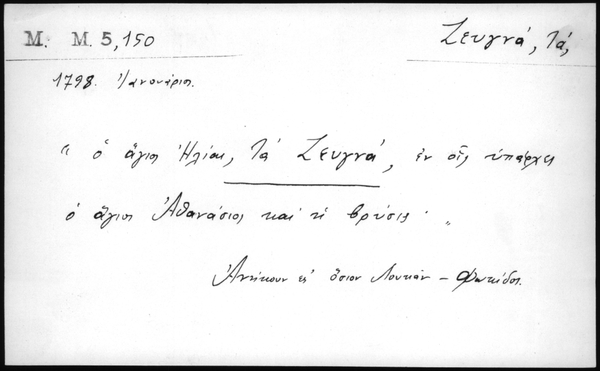 M. M. 5,150 Ζευγνά, Τά,
1798. Ἰανουάριος.
" ὁ ἅγιος Ἠλίας, τά Ζευγνά, ἐν οἷς ὑπάρχει
ὁ ἅγιος Ἀθανάσιος καί ἡ βρύσις. "
Ἀνήκουν εἰς ὅσιον Λουκᾶν – Φωκίδος.